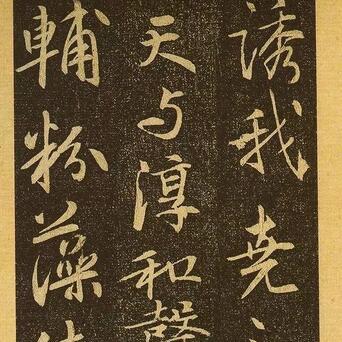 誘我尭
天与淳和馨
輔粉藻